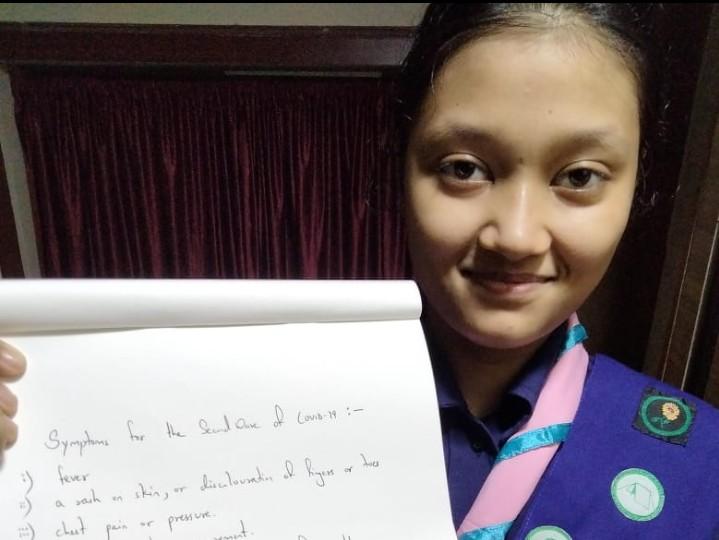 Symptoms for the Second Wave of Covid-19 :-
i) fever
ii) a rash on skin, or discolouration of fingers or toes
iii) chest pain or pressure.